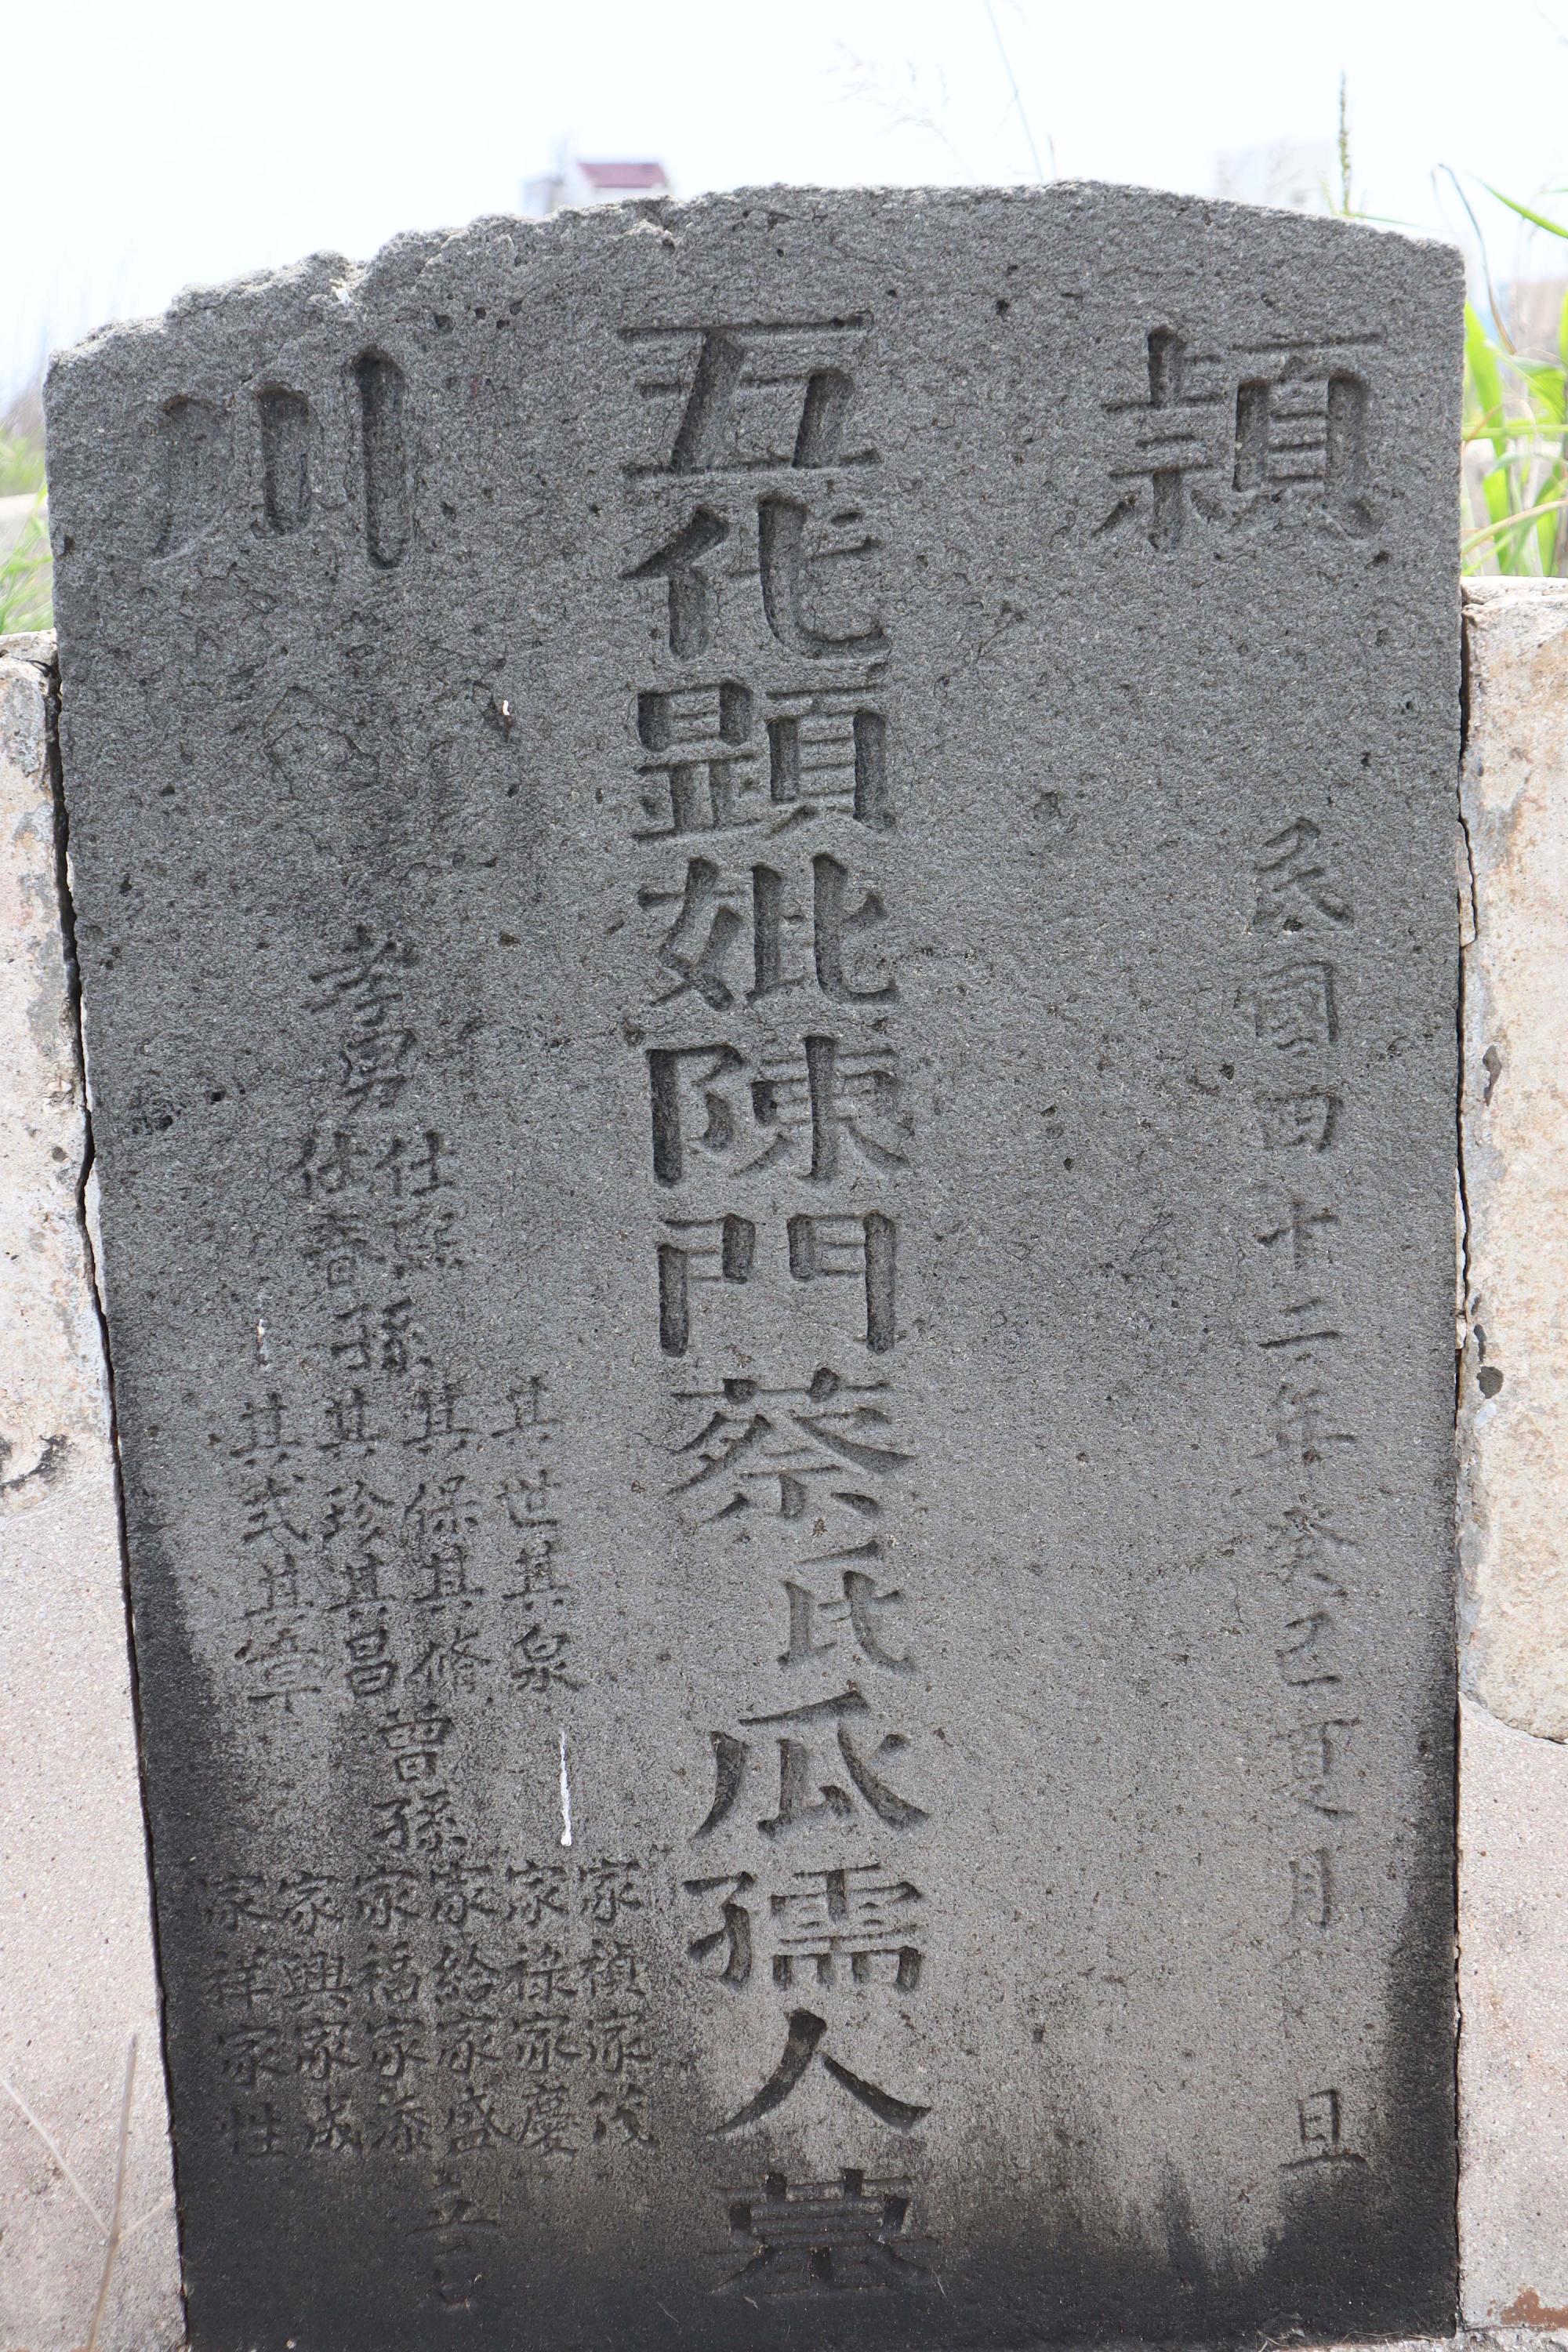 頴川
民國四十二年癸巳夏月 旦
五代顕妣陳門蔡氏瓜孺人墓
孝男
仕熙
仕香
孫
其世其泉
其保其修
其珍其昌
其武其章
曾孫
家禎家茂
家祿家慶
家給家盛
家福家添
家興家成
家祥家性
立石